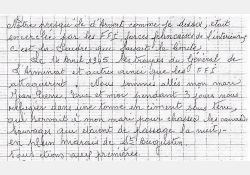 Notre presqu'île d'Arvert comme je dessus, était
encerclée par les FFI forces françaises de l'intérieur,
c'est la Seudre qui faisait la limite.
Le 14 Avril 1945 les troupes du Général de
l'Arminat et autres ainsi que les FFI
attaquèrent. Nous sommes allés mon mari
Jean-Pierre, Eric et moi pendant 3 jours nous
réfugier dans une tonne en ciment sous terre,
qui servait à mon mari pour chasser les canards
sauvages qui étaient de passage la nuit,
en plein marais de St Augustin.
Nous étions assez